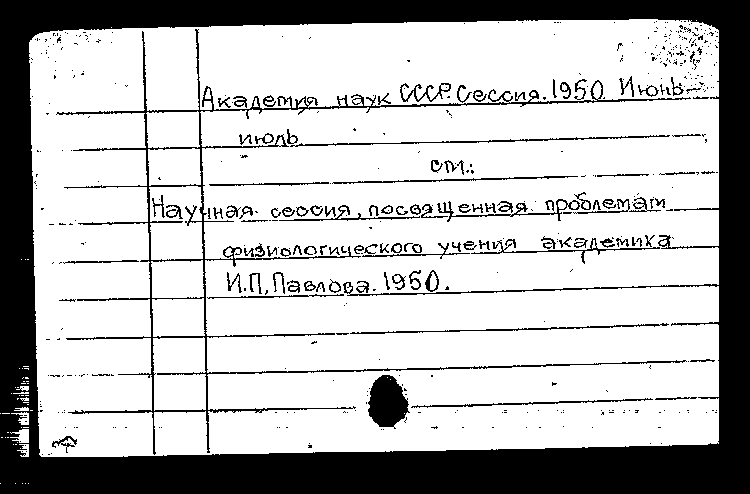 Академия наук СССР. Сессия. 1950 Июнь-
июль
см.:
Научная сессия, посвященная проблемам
физиологического учения академика
И.П. Павлова. 1950.